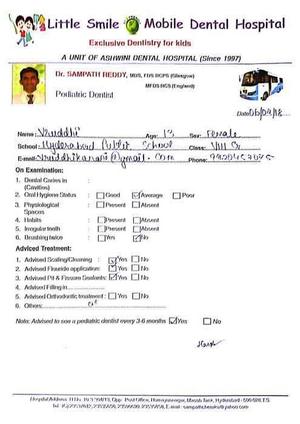 Little Smile Mobile Dental Hospital
Exclusive Dentistry for kids
A UNIT OF ASHWINI DENTAL HOSPITAL (Since 1997)
Dr. SAMPATH REDDY, MDS, FDS RCPS (Glasgow)
MFDS RCS (England)
Pediatric Dentist
Date: 06/04/18
Name: Vruddhi Age: 13 Sex: Female
School: Hyderabad Public School Class: VIII
E-mail: Phone:
On Examination:
1. Dental Caries in
(Cavities)
2. Oral Hygiene Status : Good Average Poor
3. Physiological : Present Absent
Spaces
4. Habits : Present Absent
5. Irregular teeth : Present Absent
6. Brushing twice : Yes No
Adviced Treatment:
1. Advised Scaling/Cleaning : Yes No
2. Advised Fluoride application : Yes No
3. Advised Pit & Fissure Sealants : Yes No
4. Advised Filling in
5. Advised Orthodontic treatment : Yes No
6. Others:
Note: Advised to see a pediatric dentist every 3-6 months Yes No
Hospital Address: Opp. Post Office, Humayunnagar, Masab Tank, Hyderabad
E-mail: